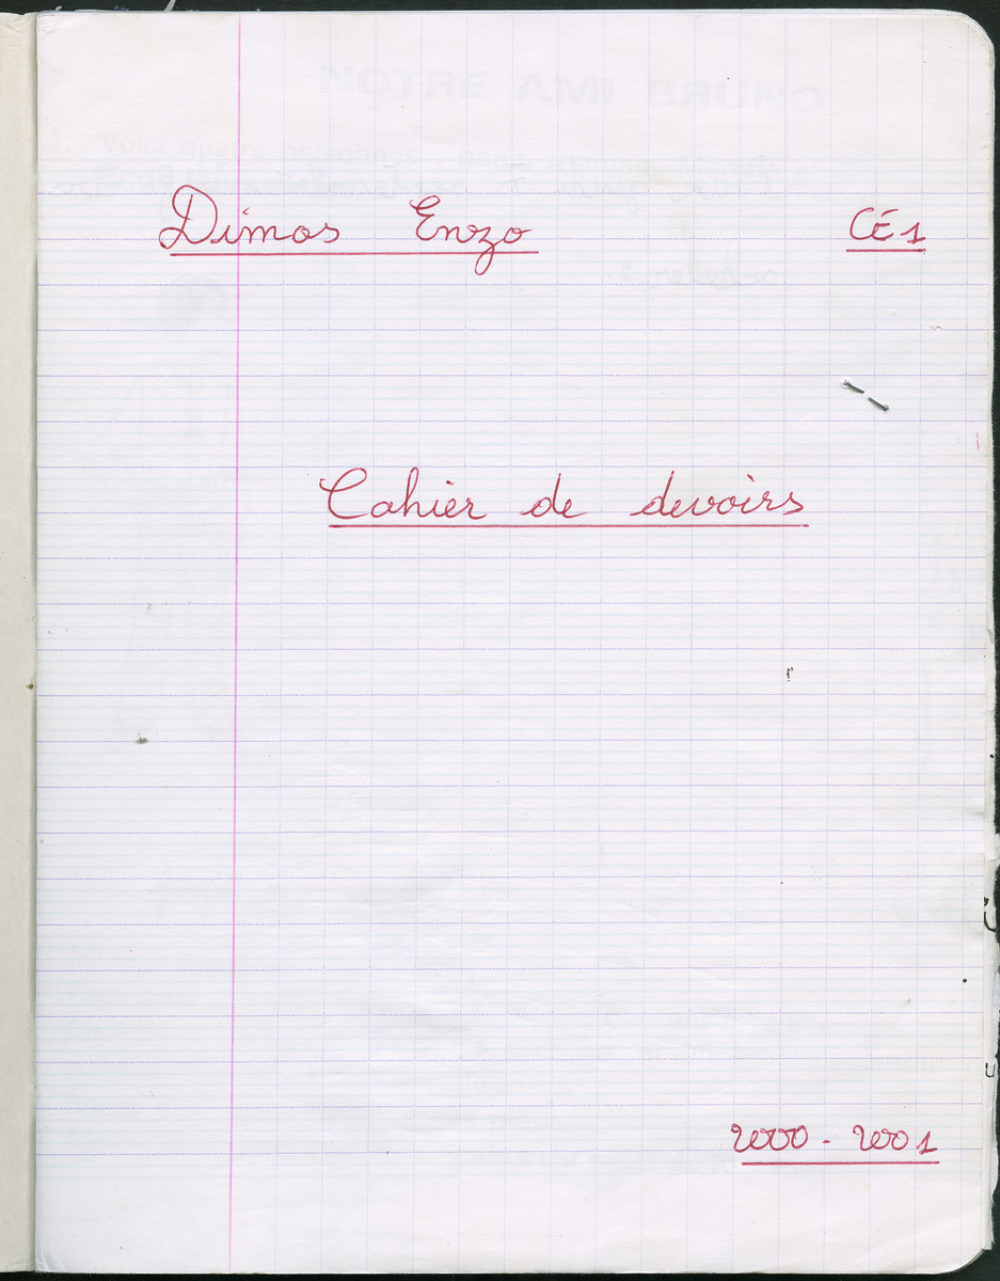 Dimos Enzo CE1
Cahier de devoirs
2000 - 2001